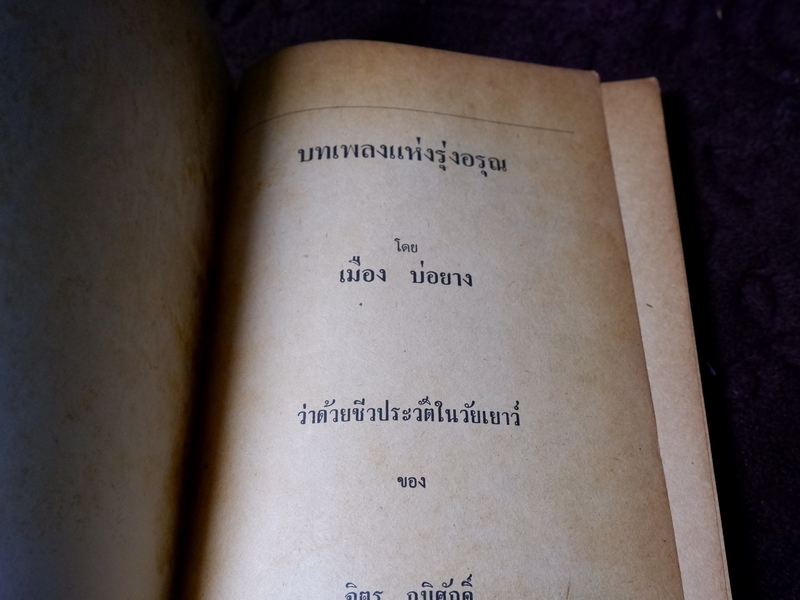 บทเพลงแห่งรุ่งอรุณ
โดย
เมือง บ่อยาง
ว่าด้วยชีวประวัติในวัยเยาว์
ของ
จิตร ภูมิศักดิ์